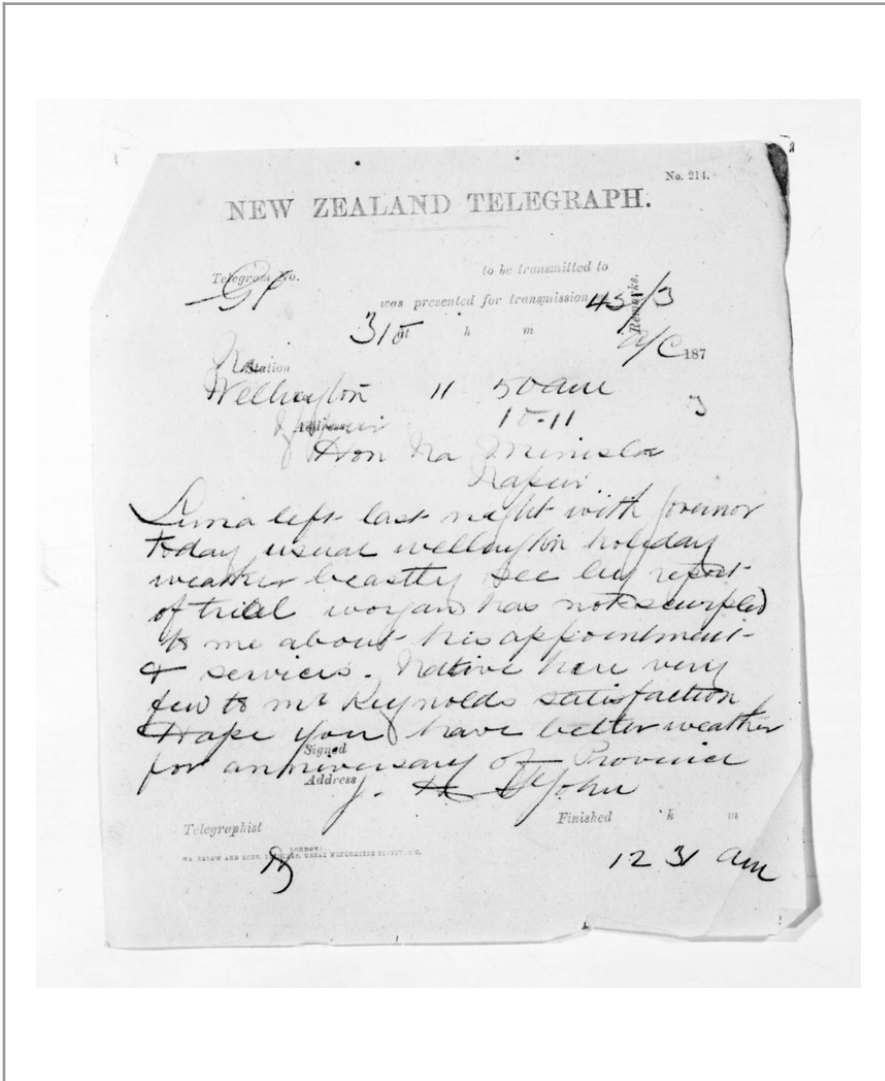 No. 214.
NEW ZEALAND TELEGRAPH.
Telegram No. to be transmitted to
was presented for transmission 45/3
Remarks.
31 st h m
187
Station
Wellington 11 50 am
Address 11
Hon Na Minister
Napier
left last night with Governor
Today usual Wellington holiday
weather beastly see report
of trial Worgan has not
to me about his appointment
& services. Native here very
few to Mr Reynolds satisfaction
Hope you have better weather
Signed
for anniversary of Province
Address
J. H. St John
Telegraphist Finished h m
LONDON:
12 31 am